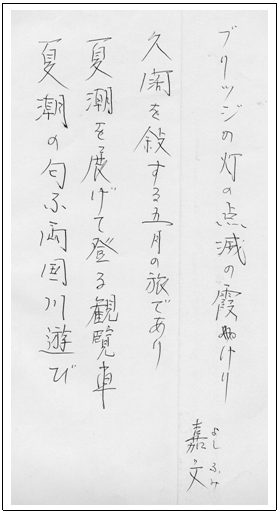 ブリッジの灯の点滅の霞みけり
久闊を叙する五月の旅であり
夏潮を展げて登る観覧車
夏潮の匂ふ両国川遊び
嘉文
よしふみ